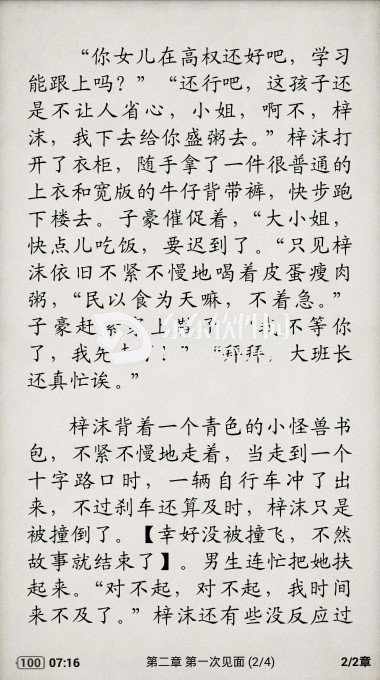 “你女儿在高权还好吧，学习
能跟上吗？”“还行吧，这孩子还
是不让人省心，小姐，啊不，梓
沫，我下去给你盛粥去。”梓沫打
开了衣柜，随手拿了一件很普通的
上衣和宽版的牛仔背带裤，快步跑
下楼去。子豪催促着，“大小姐，
快点儿吃饭，要迟到了。“只见梓
沫依旧不紧不慢地喝着皮蛋瘦肉
粥，“民以食为天嘛，不着急。”
子豪赶紧 上 不等你
了，我先 拜拜，大班长
还真忙诶。”
梓沫背着一个青色的小怪兽书
包，不紧不慢地走着，当走到一个
十字路口时，一辆自行车冲了出
来，不过刹车还算及时，梓沫只是
被撞倒了。【幸好没被撞飞，不然
故事就结束了】。男生连忙把她扶
起来。“对不起，对不起，我时间
来不及了。”梓沫还有些没反应过
100 07:16 第二章 第一次见面 (2/4) 2/2章